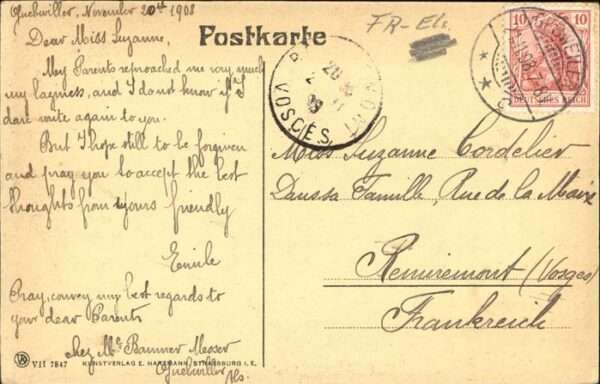 Guebwiller, November 20th 1908
Dear Miss Suzanne,
My Parents reproached me very much
my laziness, and I do not know if I
dare write again to you.
But I hope still to be forgiven
and pray you to accept the best
thoughts from yours friendly
Emile
Pray, convey my best regards to
your dear Parents
chez Me Baumer Messer
Guebwiller Als.
Postkarte
FR-Els.
20
11
08
VOSGES
10 10
DEUTSCHES REICH
Miss Suzanne Cordelier
Danssa Famille, Rue de la Maix
Remiremont (Vosges)
Frankreich
VII 7847 KUNSTVERLAG E. HARTMANN, STRASSBURG I. E.